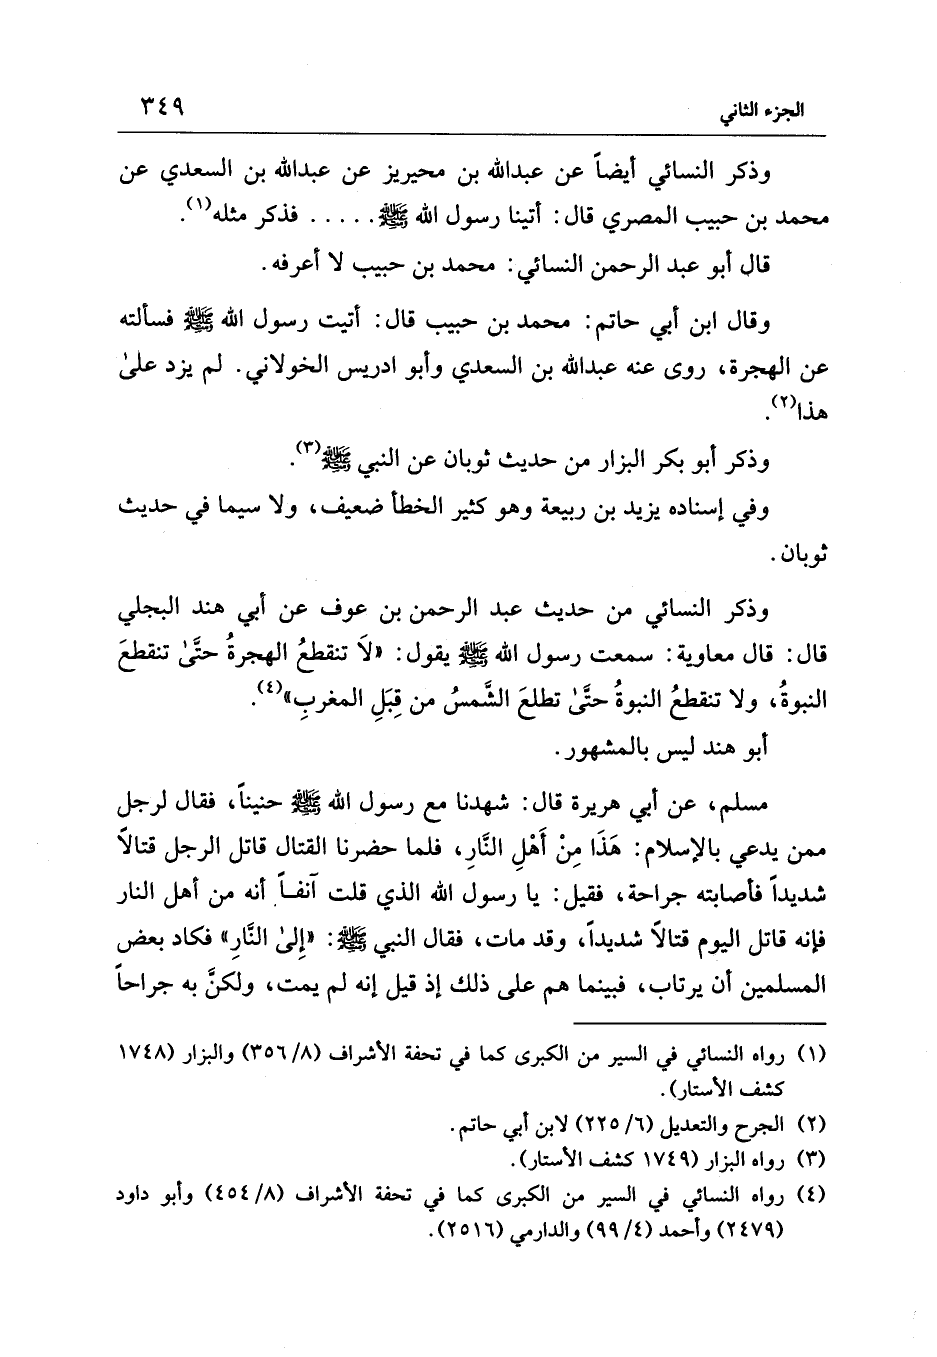 الجزء الثاني ٣٤٩
وذكر النسائي أيضاً عن عبدالله بن محيريز عن عبدالله بن السعدي عن
محمد بن حبيب المصري قال: أتينا رسول الله ﷺ..... فذكر مثله(١).
قال أبو عبد الرحمن النسائي: محمد بن حبيب لا أعرفه.
وقال ابن أبي حاتم: محمد بن حبيب قال: أتيت رسول الله ﷺ فسألته
عن الهجرة، روى عنه عبدالله بن السعدي وأبو ادريس الخولاني. لم يزد علىٰ
هذا(٢).
وذكر أبو بكر البزار من حديث ثوبان عن النبي ﷺ(٣).
وفي إسناده يزيد بن ربيعة وهو كثير الخطأ ضعيف، ولا سيما في حديث
ثوبان.
وذكر النسائي من حديث عبد الرحمن بن عوف عن أبي هند البجلي
قال: قال معاوية: سمعت رسول الله ﷺ يقول: «لاَ تنقطعُ الهجرةُ حتَّىٰ تنقطعَ
النبوةُ، ولا تنقطعُ النبوةُ حتَّىٰ تطلعَ الشَّمسُ من قِبَلِ المغربِ»(٤).
أبو هند ليس بالمشهور.
مسلم، عن أبي هريرة قال: شهدنا مع رسول الله ﷺ حنيناً، فقال لرجل
ممن يدعي بالإسلام: هَذَا مِنْ أَهْلِ النَّارِ، فلما حضرنا القتال قاتل الرجل قتالاً
شديداً فأصابته جراحة، فقيل: يا رسول الله الذي قلت آنفاً أنه من أهل النار
فإنه قاتل اليوم قتالاً شديداً، وقد مات، فقال النبي ﷺ: «إِلىٰ النَّارِ» فكاد بعض
المسلمين أن يرتاب، فبينما هم على ذلك إذ قيل إنه لم يمت، ولكنَّ به جراحاً
(١) رواه النسائي في السير من الكبرى كما في تحفة الأشراف (٨/ ٣٥٦) والبزار (١٧٤٨
كشف الأستار).
(٢) الجرح والتعديل (٦/ ٢٢٥) لابن أبي حاتم.
(٣) رواه البزار (١٧٤٩ كشف الأستار).
(٤) رواه النسائي في السير من الكبرى كما في تحفة الأشراف (٨/ ٤٥٤) وأبو داود
(٢٤٧٩) وأحمد (٤/ ٩٩) والدارمي (٢٥١٦).